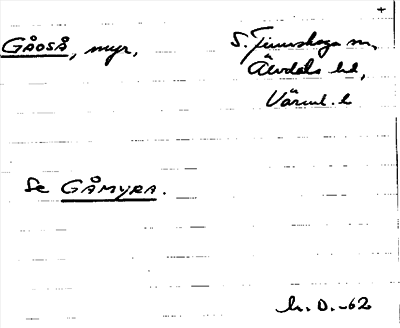 +
GÅOSÅ, myr, S. Finnskoga sn,
Älvdals hd,
Värml. l
Se GÅMYRA.
h. D. -62